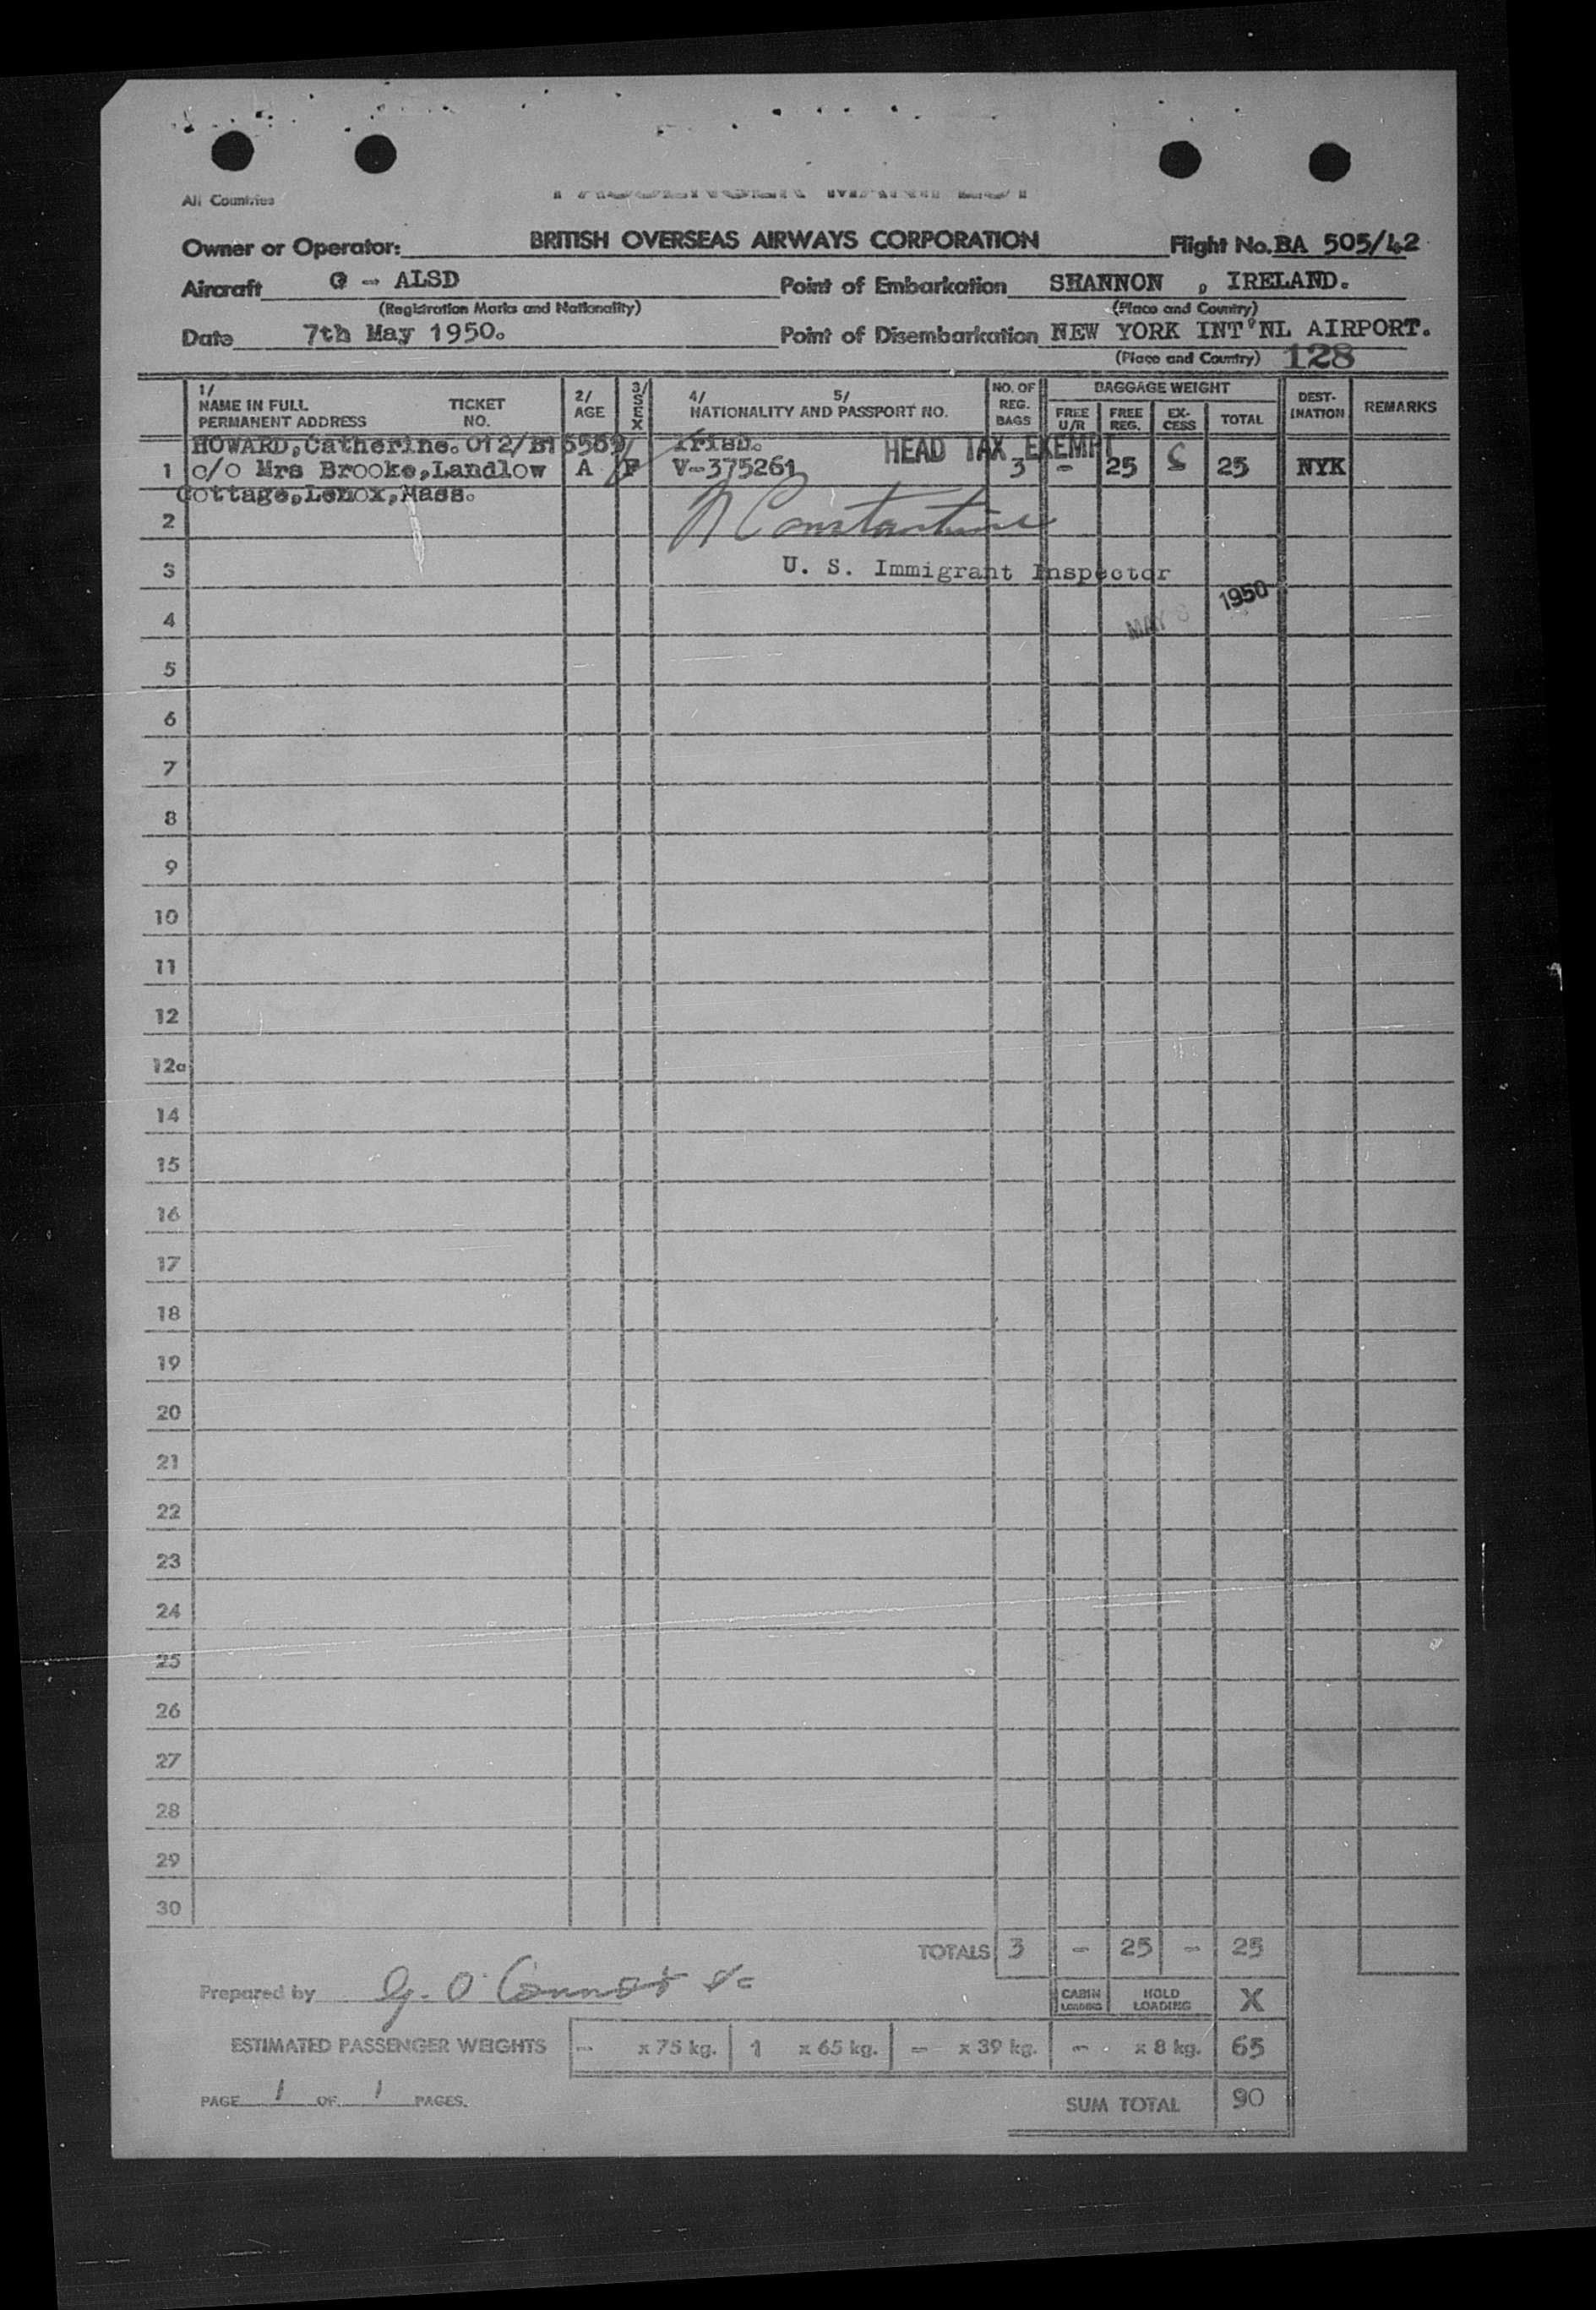 All Countries
PASSENGER MANIFEST
Owner or Operator: BRITISH OVERSEAS AIRWAYS CORPORATION Flight No. BA 505/42
Aircraft G - ALSD Point of Embarkation SHANNON , IRELAND.
(Registration Marks and Nationality) (Place and Country)
Date 7th May 1950. Point of Disembarkation NEW YORK INT'NL AIRPORT.
(Place and Country) 128
1/ NAME IN FULL PERMANENT ADDRESS TICKET NO. 2/ AGE 3/ SEX 4/ 5/ NATIONALITY AND PASSPORT NO. NO. OF REG. BAGS BAGGAGE WEIGHT FREE U/R FREE REG. EX-CESS TOTAL DEST-INATION REMARKS
HOWARD, Catherine. 012/B16569 Irish. HEAD TAX EXEMPT
1 c/o Mrs Brooke, Landlow A F V-375261 3 - 25 25 NYK
Cottage, Lenox, Mass.
2 N Constantine
3 U. S. Immigrant Inspector
4 MAY 8 1950
5
6
7
8
9
10
11
12
12a
14
15
16
17
18
19
20
21
22
23
24
25
26
27
28
29
30
TOTALS 3 - 25 - 25
Prepared by G. O'Connor
CABIN LOADING HOLD LOADING X
ESTIMATED PASSENGER WEIGHTS - x 75 kg. 1 x 65 kg. - x 39 kg. - x 8 kg. 65
PAGE 1 OF 1 PAGES. SUM TOTAL 90